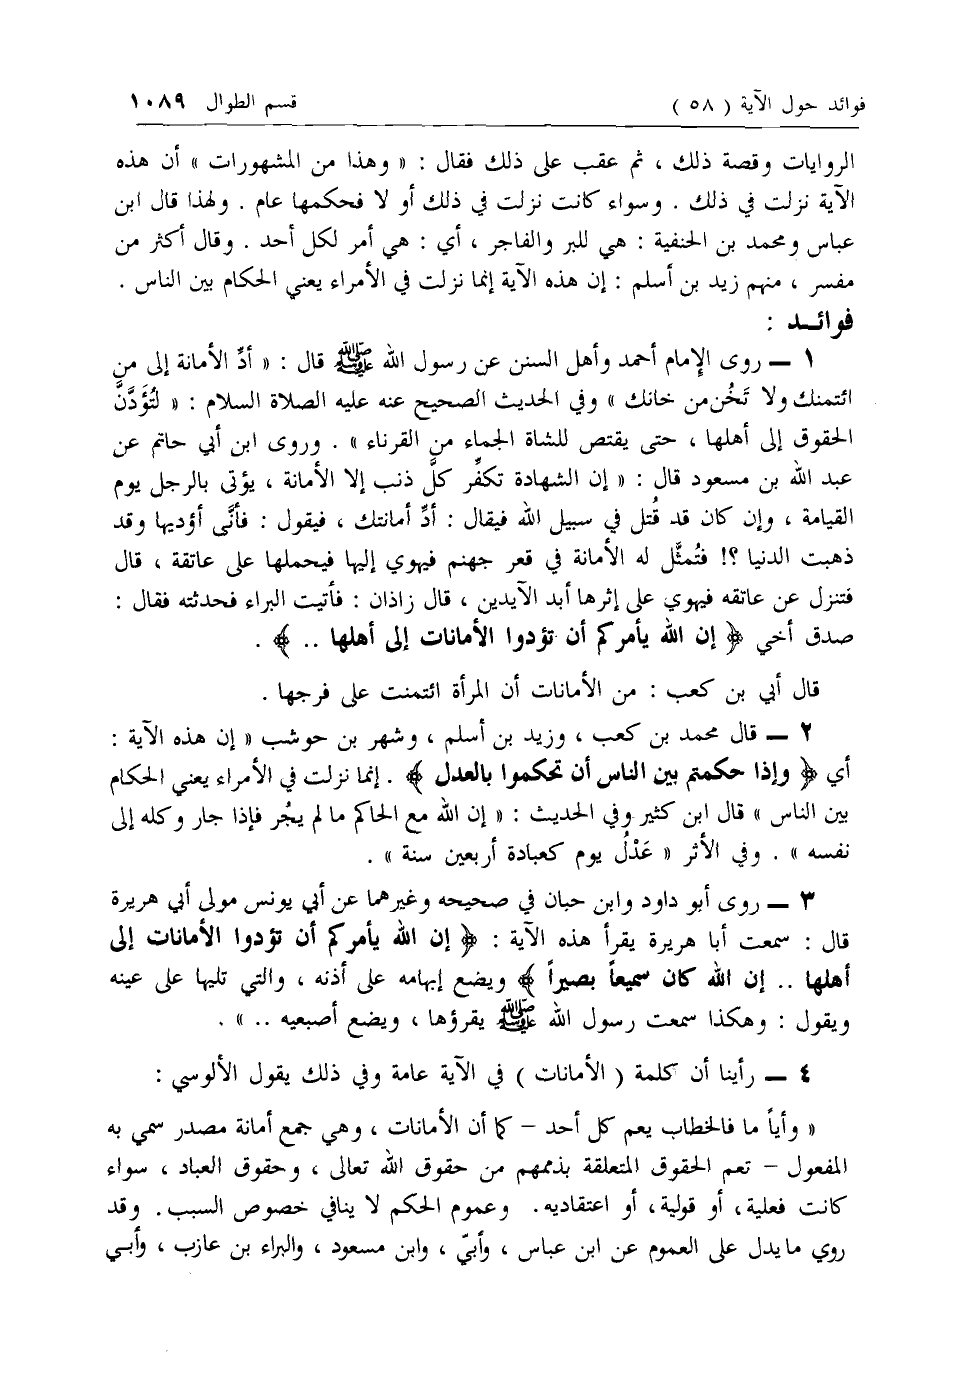 فوائد حول الآية ( ٥٨ )
قسم الطوال ١٠٨٩
الروايات وقصة ذلك ، ثم عقب على ذلك فقال : « وهذا من المشهورات » أن هذه
الآية نزلت في ذلك . وسواء كانت نزلت في ذلك أو لا فحكمها عام . ولهذا قال ابن
عباس ومحمد بن الحنفية : هي للبر والفاجر ، أي : هي أمر لكل أحد . وقال أكثر من
مفسر ، منهم زيد بن أسلم : إن هذه الآية إنما نزلت في الأمراء يعني الحكام بين الناس .
فوائـد :
١ ــ روى الإمام أحمد وأهل السنن عن رسول الله ﷺ قال : « أدِّ الأمانة إلى من
ائتمنك ولا تَخُن من خانك » وفي الحديث الصحيح عنه عليه الصلاة السلام : « لَتُؤَدَّنَّ
الحقوق إلى أهلها ، حتى يقتص للشاة الجماء من القرناء » . وروى ابن أبي حاتم عن
عبد الله بن مسعود قال : « إن الشهادة تكفِّر كلَّ ذنب إلا الأمانة ، يؤتى بالرجل يوم
القيامة ، وإن كان قد قُتل في سبيل الله فيقال : أدِّ أمانتك ، فيقول : فأنَّى أؤديها وقد
ذهبت الدنيا ؟! فتُمثَّل له الأمانة في قعر جهنم فيهوي إليها فيحملها على عاتقة ، قال
فتنزل عن عاتقه فيهوي على إثرها أبد الآبدين ، قال زاذان : فأتيت البراء فحدثته فقال :
صدق أخي ﴿ إن الله يأمركم أن تؤدوا الأمانات إلى أهلها .. ﴾ .
قال أبي بن كعب : من الأمانات أن المرأة ائتمنت على فرجها .
٢ ــ قال محمد بن كعب ، وزيد بن أسلم ، وشهر بن حوشب « إن هذه الآية :
أي ﴿ وإذا حكمتم بين الناس أن تحكموا بالعدل ﴾ . إنما نزلت في الأمراء يعني الحكام
بين الناس » قال ابن كثير وفي الحديث : « إن الله مع الحاكم ما لم يجُر فإذا جار وكله إلى
نفسه » . وفي الأثر « عَدْلُ يوم كعبادة أربعين سنة » .
٣ ــ روى أبو داود وابن حبان في صحيحه وغيرهما عن أبي يونس مولى أبي هريرة
قال : سمعت أبا هريرة يقرأ هذه الآية : ﴿ إن الله يأمركم أن تؤدوا الأمانات إلى
أهلها .. إن الله كان سميعاً بصيراً ﴾ ويضع إبهامه على أذنه ، والتي تليها على عينه
ويقول : وهكذا سمعت رسول الله ﷺ يقرؤها ، ويضع أصبعيه .. » .
٤ ــ رأينا أن كلمة ( الأمانات ) في الآية عامة وفي ذلك يقول الألوسي :
« وأياً ما فالخطاب يعم كل أحد – كما أن الأمانات ، وهي جمع أمانة مصدر سمي به
المفعول – تعم الحقوق المتعلقة بذممهم من حقوق الله تعالى ، وحقوق العباد ، سواء
كانت فعلية، أو قولية، أو اعتقاديه. وعموم الحكم لا ينافي خصوص السبب. وقد
روي ما يدل على العموم عن ابن عباس ، وأبيّ ، وابن مسعود ، والبراء بن عازب ، وأبـي